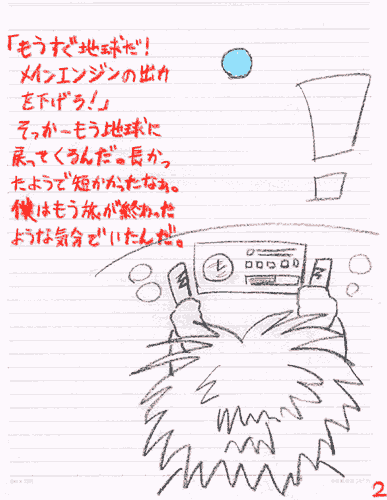 「もうすぐ地球だ!
メインエンジンの出力
を下げろ!」
そっかーもう地球に
戻ってくるんだ。長かっ
たようで短かかったなぁ。
僕はもう旅が終わった
ような気分でいたんだ。
!
2